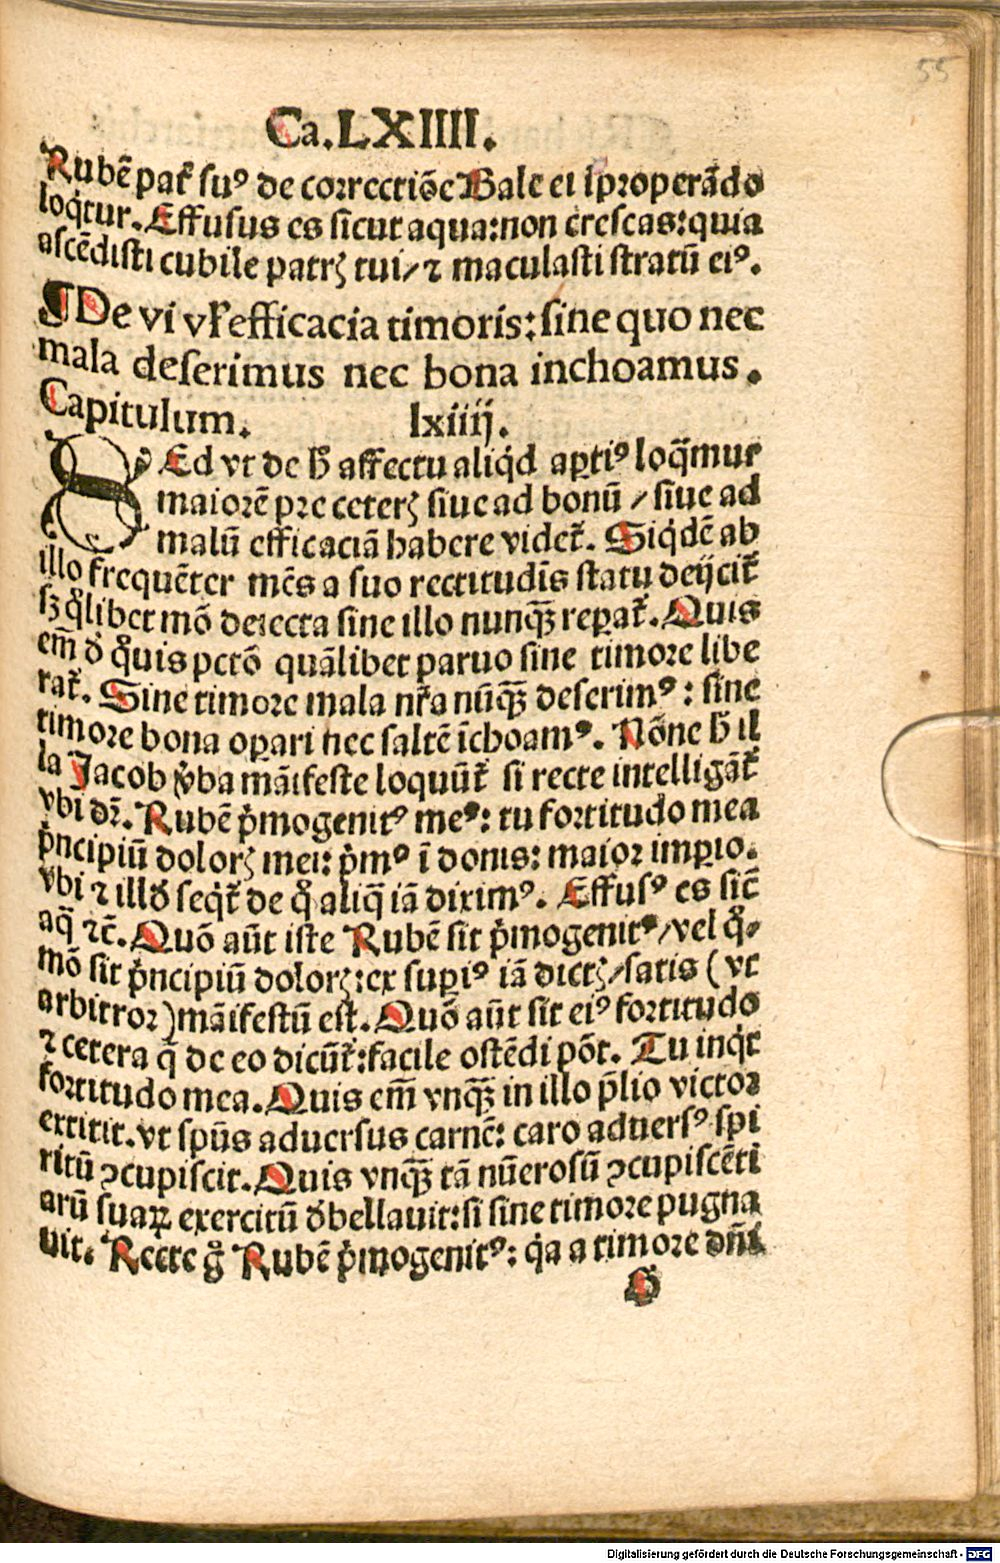 55
Ca.LXIIII.
Rubē pat̄ suꝰ de correctiōe Bale ei īproperādo
loq̄tur. Effusus es sicut aqua: non crescas: quia
ascēdisti cubile patrꝫ tui/ ⁊ maculasti stratū eiꝰ.
¶ De vi vl̄ efficacia timoris: sine quo nec
mala deserimus nec bona inchoamus.
Capitulum. lxiiij.
SEd vt de h̄ affectu aliqͥd aꝑtiꝰ loq̄mur
maiorē pre ceterꝭ siue ad bonū / siue ad
malū efficaciā habere videt̄. Siqͥdē ab
illo frequēter mēs a suo rectitudīs statu deijcit̄
sꝫ qͣlibet mō deiecta sine illo nunqꝫ̄ reꝑat̄. Quis
em̄ ð qͦuis pctō quālibet paruo sine timore libe
rat̄. Sine timore mala nr̄a nūqꝫ̄ deserimꝰ : sine
timore bona oꝑari nec saltē īchoamꝰ. Nōne h̄ il
la Jacob v̓ba māifeste loquūt̄ si recte intelligāt̄
vbi dr̄. Rubē pͥmogenitꝰ meꝰ: tu fortitudo mea
pͥncipiū dolorꝭ mei: pͥmꝰ ī donis: maior imꝑio.
vbi ⁊ illð seqͥt̄ de qͦ aliq̄ iā diximꝰ. Effusꝰ es sic̄
aq̄ ⁊c̄. Quō aūt iste Rubē sit pͥmogenitꝰ/ vel qͦ-
mō sit pͥncipiū dolorꝭ: ex suꝑiꝰ iā dictꝭ/ satis (vt
arbitror) māifestū est. Quō aūt sit eiꝰ fortitudo
⁊ cetera q̄ de eo dicūt̄: facile ostēdi pōt. Tu inqͥt
fortitudo mea. Quis em̄ vnqꝫ̄ in illo p̄lio victor
extitit. vt spūs aduersus carnē: caro aduersꝰ spi
ritū ꝯcupiscit. Quis vnqꝫ̄ tā nūerosū ꝯcupiscēti
arū suaꝝ exercitū ðbellauit: si sine timore pugna
uit. Recte gͦ Rubē pͥmogenitꝰ: qͥa a timore dn̄i
G
Digitalisierung gefördert durch die Deutsche Forschungsgemeinschaft - DFG